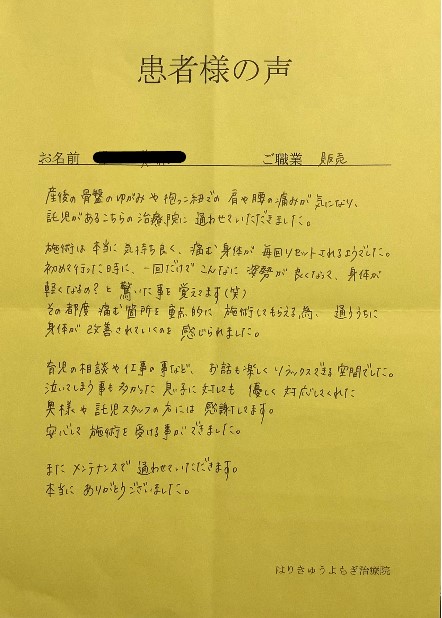 患者様の声
お名前 ご職業 販売
産後の骨盤のゆがみや抱っこ紐での肩や腰の痛みが気になり、
託児があるこちらの治療院に通わせていただきました。
施術は本当に気持ち良く、痛む身体が毎回リセットされるようでした。
初めて行った時に、一回だけでこんなに姿勢が良くなって、身体が
軽くなるの?と驚いた事を覚えてます(笑)
その都度痛む箇所を重点的に施術してもらえる為、通ううちに
身体が改善されていくのを感じられました。
育児の相談や仕事の事など、お話も楽しくリラックスできる空間でした。
泣いてしまう事も多かった息子に対しても優しく対応してくれた
奥様や託児スタッフの方には感謝してます。
安心して施術を受ける事ができました。
またメンテナンスで通わせていただきます。
本当にありがとうございました。
はりきゅうよもぎ治療院